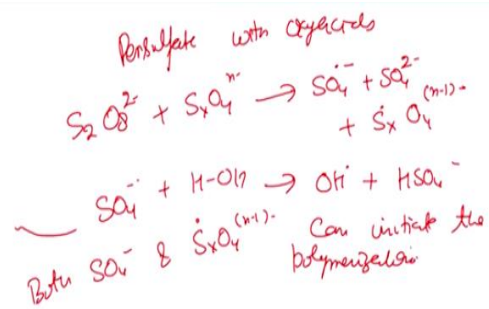 Persulfate with oxyacids
S₂O₈²⁻ + SₓO₄ⁿ⁻ → SO₄•⁻ + SO₄²⁻
+ ṠₓO₄⁽ⁿ⁻¹⁾⁻
SO₄•⁻ + H-OH → OH• + HSO₄⁻
Both SO₄⁻ & ṠₓO₄⁽ⁿ⁻¹⁾⁻ Can initiate the
polymerization.